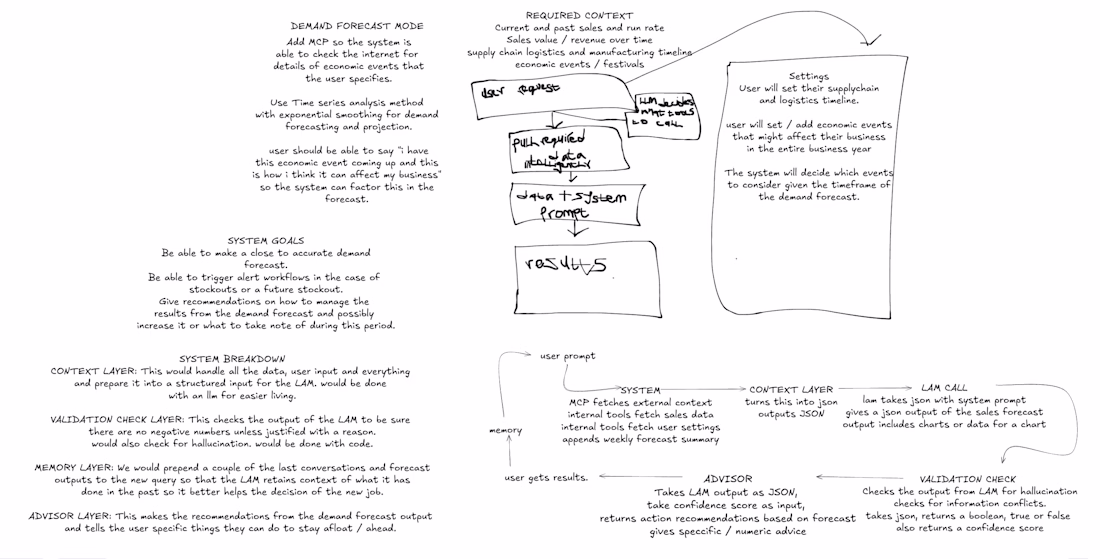 DEMAND FORECAST MODE
Add MCP so the system is
able to check the internet for
details of economic events that
the user specifies.
Use Time series analysis method
with exponential smoothing for demand
forecasting and projection.
user should be able to say "i have
this economic event coming up and this
is how i think it can affect my business"
so the system can factor this in the
forecast.
REQUIRED CONTEXT
Current and past sales and run rate
Sales value / revenue over time
supply chain logistics and manufacturing timeline
economic events / festivals
user request
LLM decides
what tools
to call
pull required
data
intelligently
data + system
prompt
results
Settings
User will set their supplychain
and logistics timeline.
user will set / add economic events
that might affect their business
in the entire business year
The system will decide which events
to consider given the timeframe of
the demand forecast.
SYSTEM GOALS
Be able to make a close to accurate demand
forecast.
Be able to trigger alert workflows in the case of
stockouts or a future stockout.
Give recommendations on how to manage the
results from the demand forecast and possibly
increase it or what to take note of during this period.
SYSTEM BREAKDOWN
CONTEXT LAYER: This would handle all the data, user input and everything
and prepare it into a structured input for the LAM. would be done
with an llm for easier living.
VALIDATION CHECK LAYER: This checks the output of the LAM to be sure
there are no negative numbers unless justified with a reason.
would also check for hallucination. would be done with code.
MEMORY LAYER: We would prepend a couple of the last conversations and forecast
outputs to the new query so that the LAM retains context of what it has
done in the past so it better helps the decision of the new job.
ADVISOR LAYER: This makes the recommendations from the demand forecast output
and tells the user specific things they can do to stay afloat / ahead.
user prompt
SYSTEM
MCP fetches external context
internal tools fetch sales data
internal tools fetch user settings
appends weekly forecast summary
CONTEXT LAYER
turns this into json
outputs JSON
LAM CALL
lam takes json with system prompt
gives a json output of the sales forecast
output includes charts or data for a chart
VALIDATION CHECK
Checks the output from LAM for hallucination
checks for information conflicts.
takes json, returns a boolean, true or false
also returns a confidence score
ADVISOR
Takes LAM output as JSON,
take confidence score as input,
returns action recommendations based on forecast
gives speccific / numeric advice
user gets results.
memory